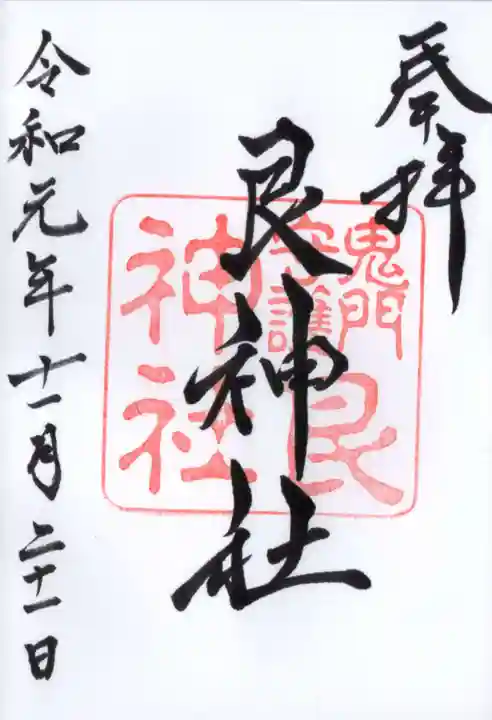 奉拝
艮神社
鬼門
守護
艮
神社
令和元年十一月二十一日